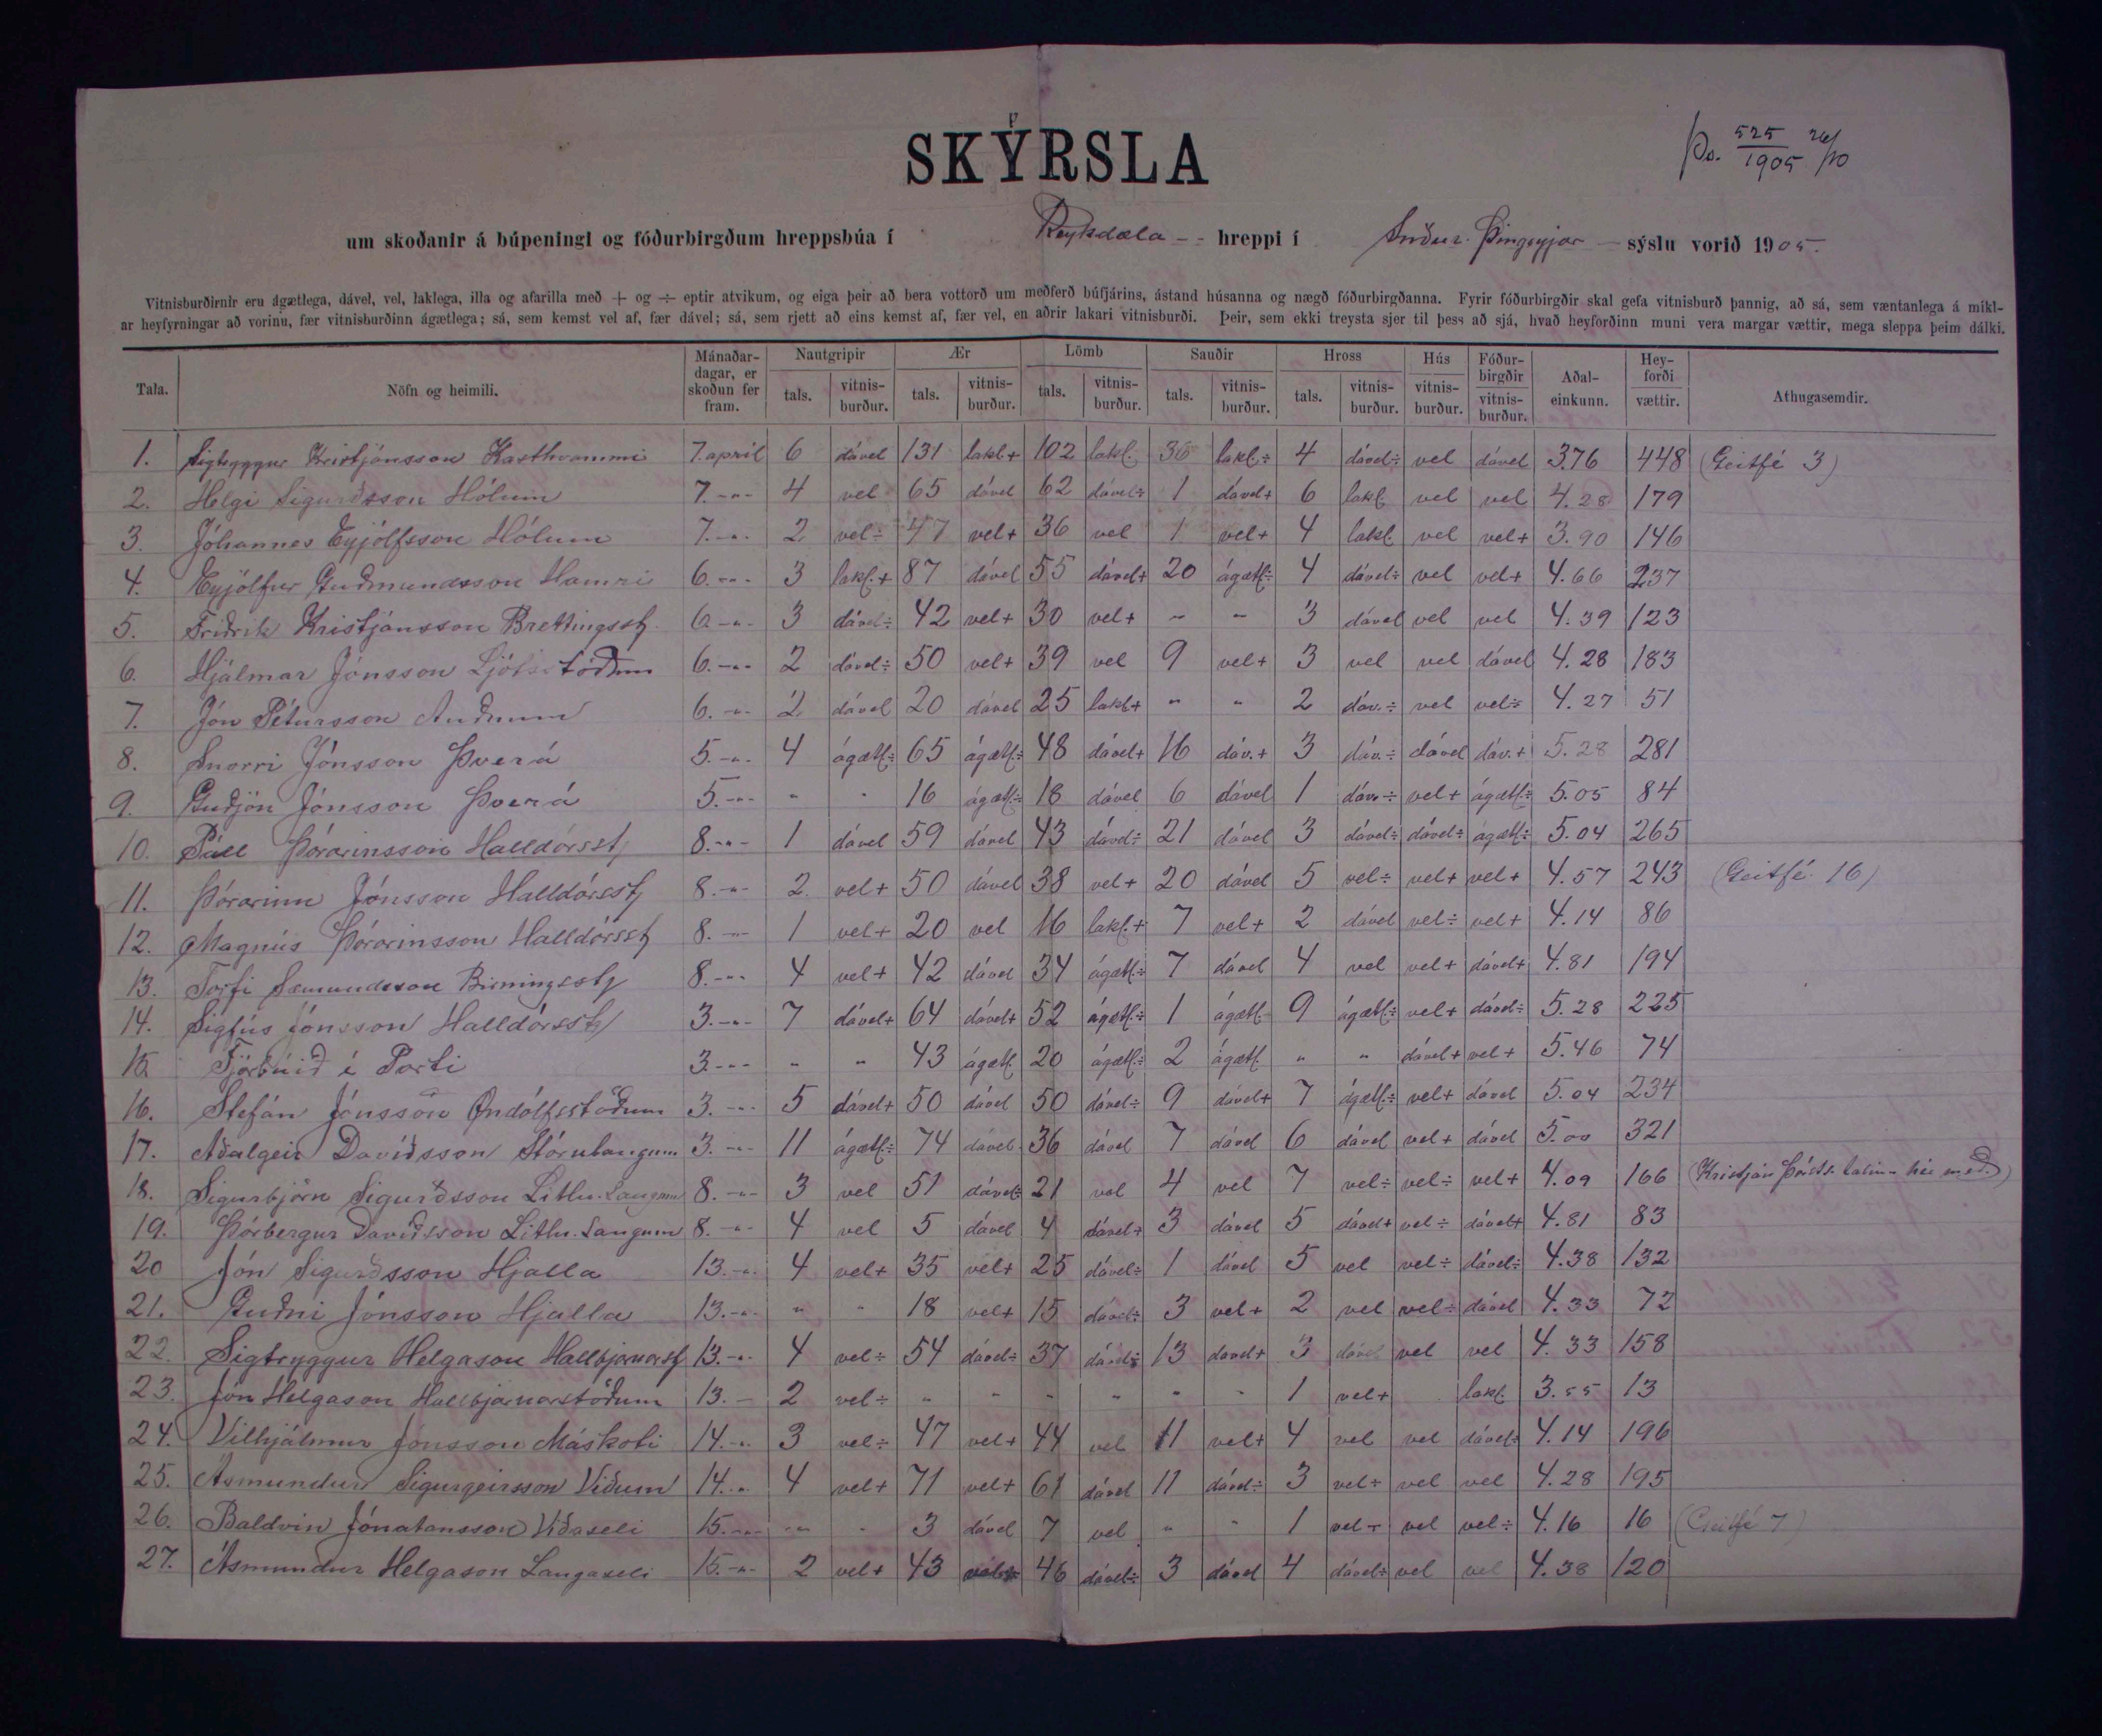 SKÝRSLA
Þs. 525/1905 26/10
um skoðanir á búpeningi og fóðurbirgðum hreppsbúa í Reykdæla -- hreppi í Suður-Þingeyjar - sýslu vorið 1905.
Vitnisburðirnir eru ágætlega, dável, vel, laklega, illa og afarilla með + og ÷ eptir atvikum, og eiga þeir að bera vottorð um meðferð búfjárins, ástand húsanna og nægð fóðurbirgðanna. Fyrir fóðurbirgðir skal gefa vitnisburð þannig, að sá, sem væntanlega á mikl-
ar heyfyrningar að vorinu, fær vitnisburðinn ágætlega; sá, sem kemst vel af, fær dável; sá, sem rjett að eins kemst af, fær vel, en aðrir lakari vitnisburði. Þeir, sem ekki treysta sjer til þess að sjá, hvað heyforðinn muni vera margar vættir, mega sleppa þeim dálki.
Tala. Nöfn og heimili. Mánaðar-dagar, er skoðun fer fram. Nautgripir tals. vitnis-burður. Ær tals. vitnis-burður. Lömb tals. vitnis-burður. Sauðir tals. vitnis-burður. Hross tals. vitnis-burður. Hús vitnis-burður. Fóður-birgðir vitnis-burður. Aðal-einkunn. Hey-forði vættir. Athugasemdir.
1. Sigtryggur Kristjánsson Kasthvammi 7. apríl 6 dável 131 lakl+ 102 lakl. 36 lakl÷ 4 dável÷ vel dável 3.76 448 (Geitfé 3)
2. Helgi Sigurðsson Hólum 7. -"- 4 vel 65 dável 62 dável÷ 1 dável+ 6 lakl vel vel 4.28 179
3. Jóhannes Eyjólfsson Hólum 7. -"- 2 vel÷ 47 vel+ 36 vel 1 vel+ 4 lakl. vel vel+ 3.90 146
4. Eyjólfur Guðmundsson Hamri 6. -"- 3 lakl.+ 87 dável 55 dável+ 20 ágætl÷ 4 dável÷ vel vel+ 4.66 237
5. Friðrik Kristjánsson Brettingsst. 6. -"- 3 dável÷ 42 vel+ 30 vel+ - - 3 dável vel vel 4.39 123
6. Hjálmar Jónsson Ljótsstöðum 6. -"- 2 dável÷ 50 vel+ 39 vel 9 vel+ 3 vel vel dável 4.28 183
7. Jón Pétursson Auðnum 6. -"- 2 dável 20 dável 25 lakl+ " " 2 dáv.÷ vel vel÷ 4.27 51
8. Snorri Jónsson Þverá 5. -"- 4 ágætl÷ 65 ágætl÷ 48 dável+ 16 dáv.+ 3 dáv.÷ dável dáv.+ 5.28 281
9. Guðjón Jónsson Þverá 5. -"- " " 16 ágætl÷ 18 dável 6 dável 1 dáv.÷ vel+ ágætl÷ 5.05 84
10. Páll Þórarinsson Halldórsst. 8. -"- 1 dável 59 dável 43 dável÷ 21 dável 3 dável÷ dável÷ ágætl÷ 5.04 265
11. Þórarinn Jónsson Halldórsst. 8. -"- 2. vel+ 50 dável 38 vel+ 20 dável 5 vel÷ vel+ vel+ 4.57 243 (Geitfé 16)
12. Magnús Þórarinsson Halldórsst 8. -"- 1 vel+ 20 vel 16 lakl.+ 7 vel+ 2 dável vel÷ vel+ 4.14 86
13. Torfi Sæmundsson Birningsst. 8. -"- 4 vel+ 42 dável 34 ágætl÷ 7 dável 4 vel vel+ dável+ 4.81 194
14. Sigfús Jónsson Halldórsst. 3. -"- 7 dável+ 64 dável+ 52 ágætl.÷ 1 ágætl. 9 ágætl÷ vel+ dável÷ 5.28 225
15. Fjörbúið í Parti 3. -"- " " 43 ágætl. 20 ágætl.÷ 2 ágætl. " " dável+ vel+ 5.46 74
16. Stefán Jónsson Öndólfsstöðum 3. -"- 5 dável+ 50 dável 50 dável÷ 9 dável+ 7 ágætl÷ vel+ dável 5.04 234
17. Aðalgeir Davíðsson Stórulaugum 3. -"- 11 ágætl÷ 74 dável 36 dável 7 dável 6 dável vel+ dável 5.00 321
18. Sigurbjörn Sigurðsson Litlu-Laugum 8. -"- 3 vel 51 dável÷ 21 vel 4 vel 7 vel÷ vel÷ vel+ 4.09 166 (Kristján talinn hér með)
19. Þórbergur Davíðsson Litlu-Laugum 8. -"- 4 vel 5 dável 4 dável+ 3 dável 5 dável+ vel÷ dável+ 4.81 83
20 Jón Sigurðsson Hjalla 13. -"- 4 vel+ 35 vel+ 25 dável÷ 1 dável 5 vel vel÷ dável÷ 4.38 132
21. Guðni Jónsson Hjalla 13. -"- " " 18 vel+ 15 dável÷ 3 vel+ 2 vel vel÷ dável 4.33 72
22. Sigtryggur Helgason Hallbjarnarst. 13. -"- 4 vel÷ 54 dável÷ 37 dável÷ 13 dável+ 3 dável vel vel 4.33 158
23. Jón Helgason Hallbjarnarstöðum 13. - 2 vel÷ " " " " " " 1 vel+ lakl. 3.55 13
24. Vilhjálmur Jónsson Máskoti 14. -"- 3 vel÷ 47 vel+ 44 vel 11 vel+ 4 vel vel dável÷ 4.14 196
25. Ásmundur Sigurgeirsson Víðum 14. " 4 vel+ 71 vel+ 61 dável 11 dável÷ 3 vel+ vel vel 4.28 195
26. Baldvin Jónatansson Víðaseli 15. -"- " " 3 dável 7 vel " " 1 vel÷ vel vel÷ 4.16 16 (Geitfé 7)
27. Ásmundur Helgason Laugaseli 15. -"- 2 vel+ 43 46 dável÷ 3 dável 4 dável÷ vel vel 4.38 120